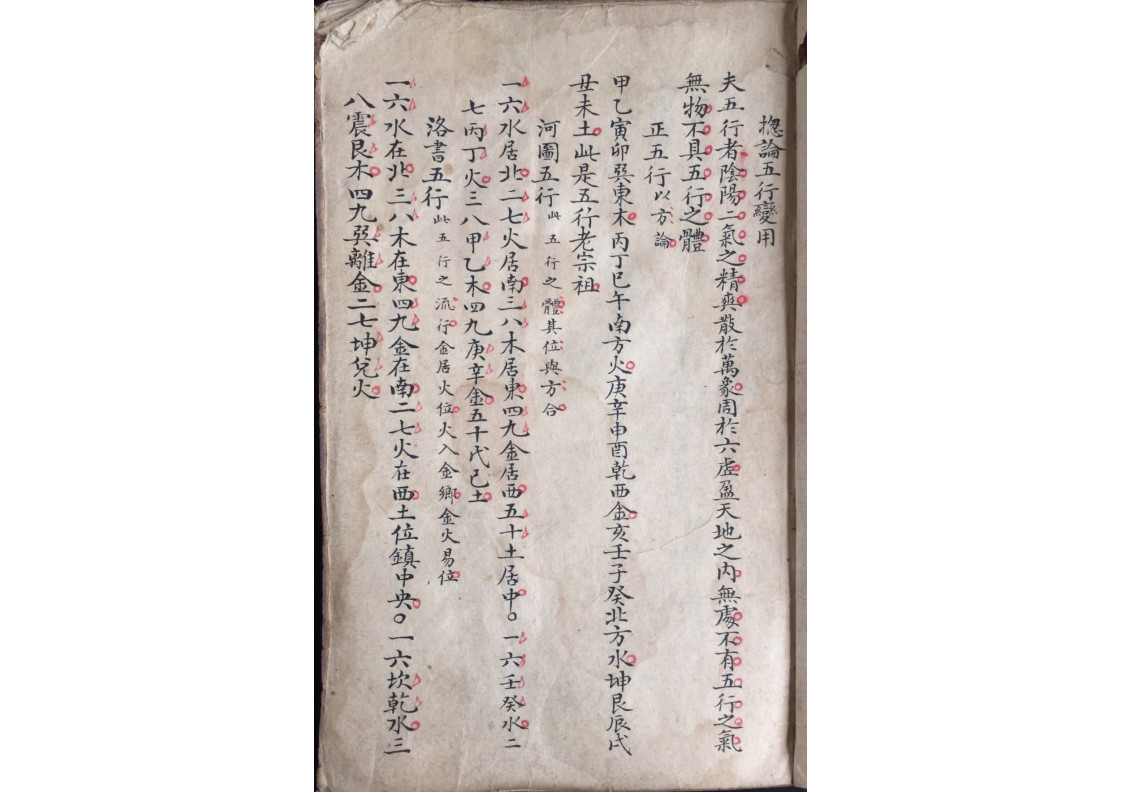 揔論五行變用
夫五行者陰陽二氣之精爽散於萬象周於六虛盈天地之內無處不有五行之氣
無物不具五行之體
正五行以方論
甲乙寅卯巽東木丙丁巳午南方火庚辛申酉乾西金亥壬子癸北方水坤艮辰戌
丑未土此是五行老宗祖
河圖五行此五行之體其位與方合
一六水居北二七火居南三八木居東四九金居西五十土居中〇一六壬癸水二
七丙丁火三八甲乙木四九庚辛金五十戊己土
洛書五行此五行之流行金居火位火入金鄉金火易位
一六水在北三八木在東四九金在南二七火在西土位鎮中央〇一六坎乾水三
八震艮木四九巽離金二七坤兌火